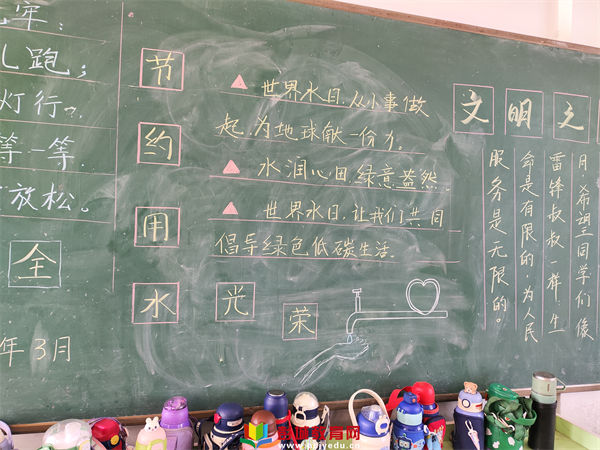 牢：
儿跑；
灯行。
等一等
放松。
全
年3月
节
约
用
水
光
荣
世界水日，从小事做
起，为地球献一份力。
水润心田，绿意盎然。
世界水日，让我们共同
倡导绿色低碳生活。
文
明
之
月，希望三同学们像
雷锋叔叔一样，生
命是有限的，为人民
服务是无限的。
教育网